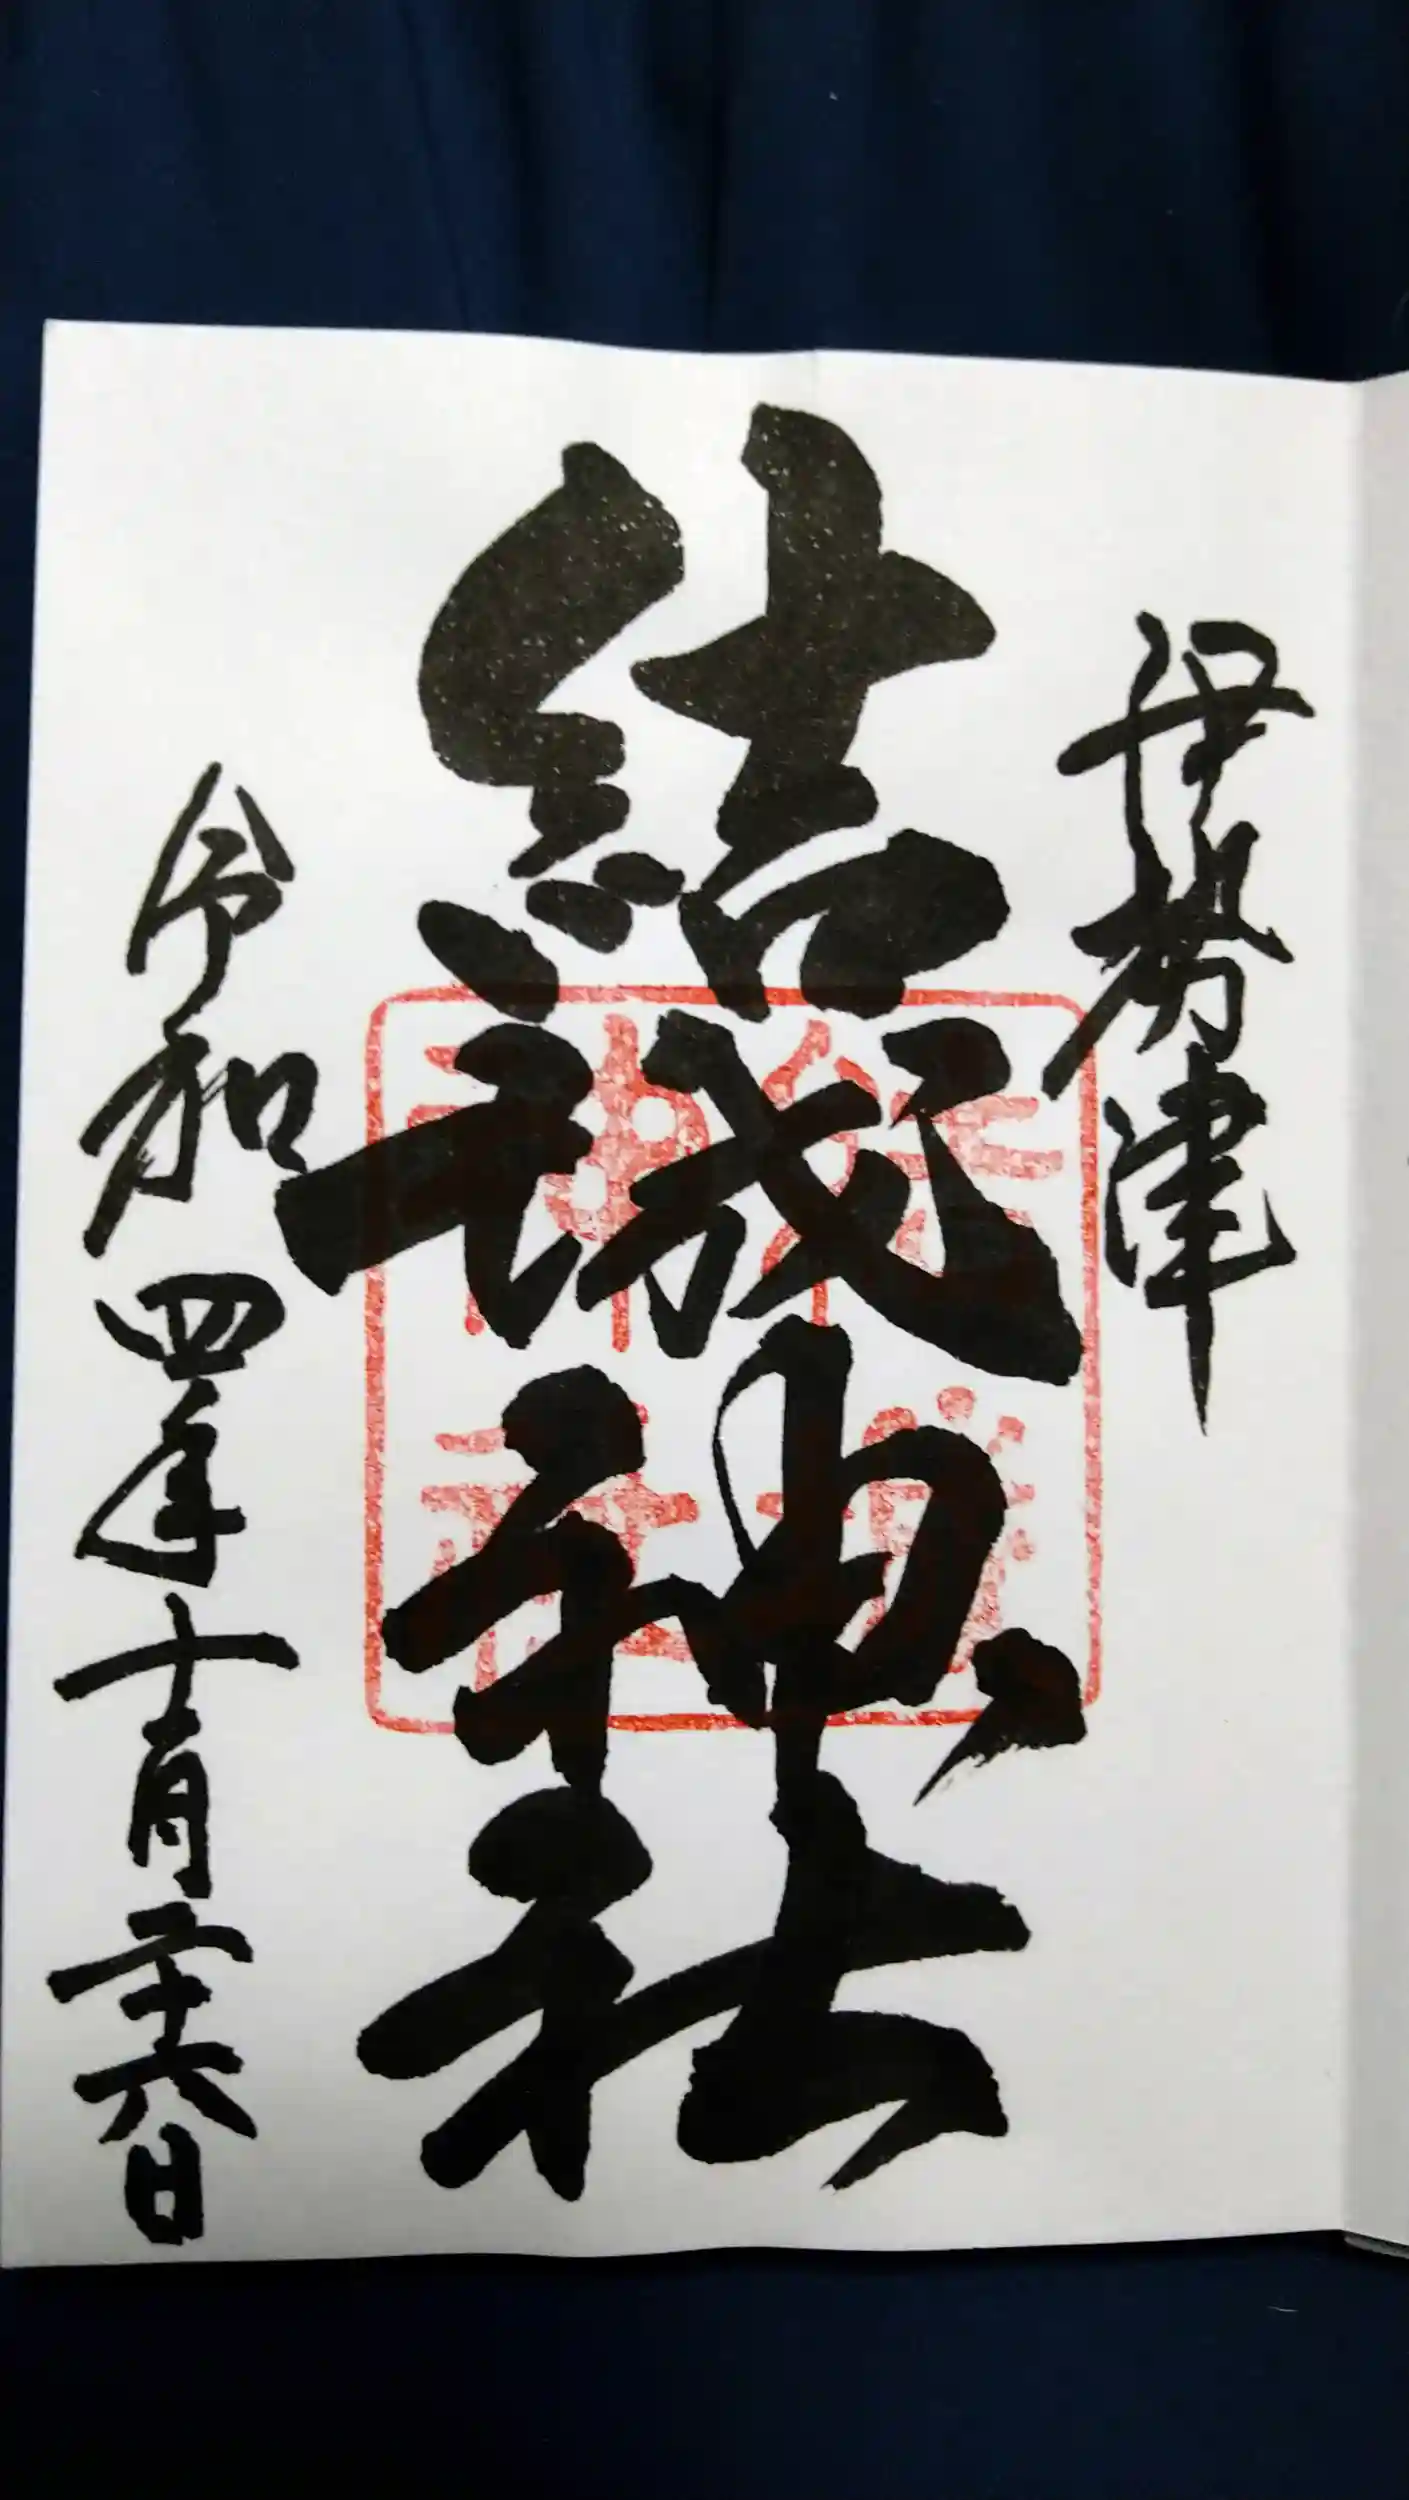 伊勢津
結城神社
結城神社
令和四年十月二十六日